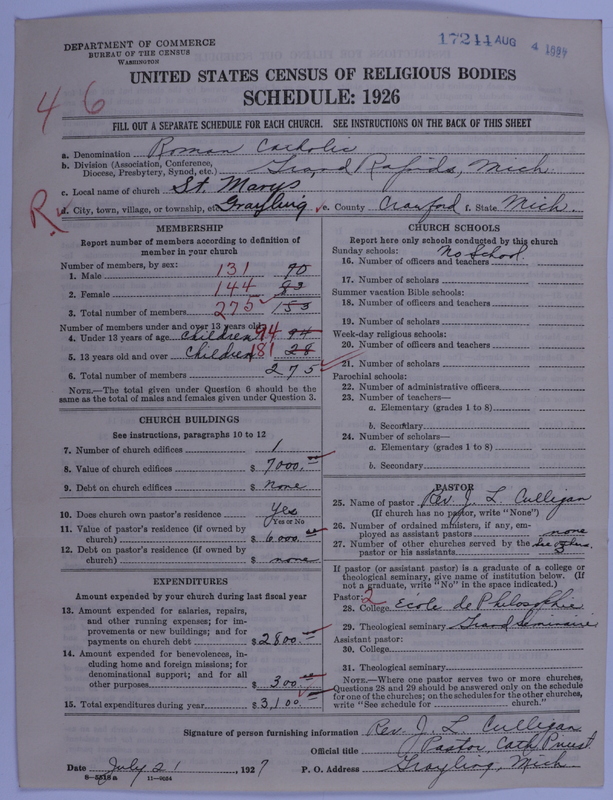 DEPARTMENT OF COMMERCE
BUREAU OF THE CENSUS
WASHINGTON
17244 AUG 4
46
UNITED STATES CENSUS OF RELIGIOUS BODIES
SCHEDULE: 1926
FILL OUT A SEPARATE SCHEDULE FOR EACH CHURCH. SEE INSTRUCTIONS ON THE BACK OF THIS SHEET
a. Denomination Roman Catholic
b. Division (Association, Conference, Diocese, Presbytery, Synod, etc.) Grand Rapids, Mich
c. Local name of church St. Marys
R.
d. City, town, village, or township, etc. Grayling e. County Crawford f. State Mich.
MEMBERSHIP
Report number of members according to definition of
member in your church
Number of members, by sex:
1. Male 131 70
2. Female 144 83
3. Total number of members 275 153
Number of members under and over 13 years old:
4. Under 13 years of age Children 94 94
5. 13 years old and over Children 181 28
6. Total number of members 275
NOTE.—The total given under Question 6 should be the
same as the total of males and females given under Question 3.
CHURCH BUILDINGS
See instructions, paragraphs 10 to 12
7. Number of church edifices 1
8. Value of church edifices $ 7000.00
9. Debt on church edifices $ none
10. Does church own pastor's residence? Yes
Yes or No
11. Value of pastor's residence (if owned by
church) $ 6000.00
12. Debt on pastor's residence (if owned by
church) $ none
EXPENDITURES
Amount expended by your church during last fiscal year
13. Amount expended for salaries, repairs,
and other running expenses; for im-
provements or new buildings; and for
payments on church debt $ 2800.00
14. Amount expended for benevolences, in-
cluding home and foreign missions; for
denominational support; and for all
other purposes $ 300.00
15. Total expenditures during year $ 3,100.00
CHURCH SCHOOLS
Report here only schools conducted by this church
Sunday schools: No School
16. Number of officers and teachers
17. Number of scholars
Summer vacation Bible schools:
18. Number of officers and teachers
19. Number of scholars
Week-day religious schools:
20. Number of officers and teachers
21. Number of scholars
Parochial schools:
22. Number of administrative officers
23. Number of teachers—
a. Elementary (grades 1 to 8)
b. Secondary
24. Number of scholars—
a. Elementary (grades 1 to 8)
b. Secondary
PASTOR
25. Name of pastor Rev. J. L. Culligan
(If church has no pastor, write "None")
26. Number of ordained ministers, if any, em-
ployed as assistant pastors none
27. Number of other churches served by the
pastor or his assistants 3
If pastor (or assistant pastor) is a graduate of a college or
theological seminary, give name of institution below. (If
not a graduate, write "No" in the space indicated.)
Pastor: 2
28. College Ecole de Philosophie
29. Theological seminary Grand Seminaire
Assistant pastor:
30. College
31. Theological seminary
NOTE.—Where one pastor serves two or more churches,
Questions 28 and 29 should be answered only on the schedule
for one of the churches; on the schedules for the other churches,
write "See schedule for church."
Signature of person furnishing information Rev. J. L. Culligan
Official title Pastor, Cath. Priest
Date July 21, 1927 P. O. Address Grayling, Mich
8-5518a 11-9034